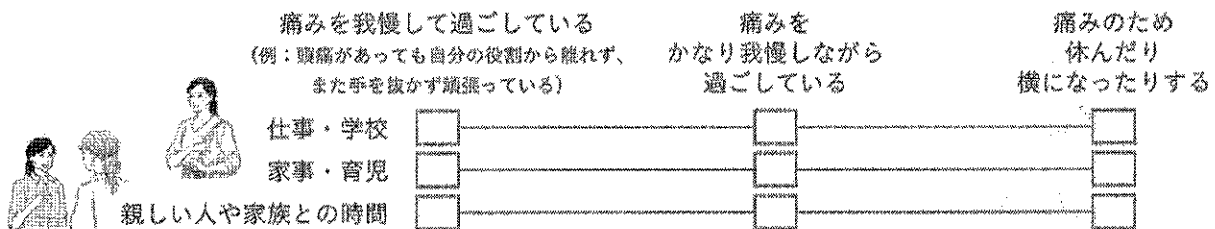 痛みを我慢して過ごしている
(例：頭痛があっても自分の役割から離れず、
また手を抜かず頑張っている)
痛みを
かなり我慢しながら
過ごしている
痛みのため
休んだり
横になったりする
仕事・学校
家事・育児
親しい人や家族との時間